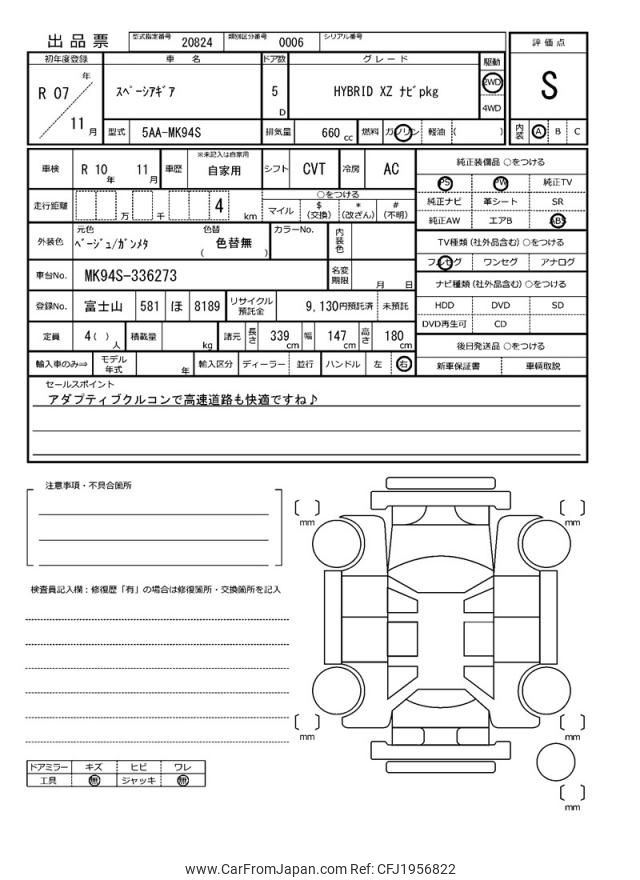 出品票 型式指定番号 20824 類別区分番号 0006 シリアル番号
評価点
S
初年度登録 車名 ドア数 グレード 駆動
R 07 年 11 月
スペーシアギア
5 D
HYBRID XZ ナビpkg
2WD
4WD
型式 5AA-MK94S 排気量 660 cc 燃料 ガソリン 軽油 ( )
内装 A B C
車検 R 10 年 11 月 車歴 ※未記入は自家用 自家用 シフト CVT 冷房 AC
純正装備品 ○をつける
PS PW 純正TV
純正ナビ 革シート SR
純正AW エアB ABS
走行距離 万 千 4 km
○をつける
マイル $(交換) *(改ざん) #(不明)
外装色 元色 ベージュ/ガンメタ 色替 ( 色替無 ) カラーNo. 内装色
TV種類 (社外品含む) ○をつける
フルセグ ワンセグ アナログ
車台No. MK94S-336273 名変期限 月 日
ナビ種類 (社外品含む) ○をつける
HDD DVD SD
DVD再生可 CD
登録No. 富士山 581 ほ 8189 リサイクル預託金 9,130円預託済 未預託
定員 4( ) 人 積載量 kg 諸元 長さ 339 cm 幅 147 cm 高さ 180 cm
後日発送品 ○をつける
新車保証書 車輌取説
輸入車のみ⇒ モデル年式 年 輸入区分 ディーラー 並行 ハンドル 左 右
セールスポイント
アダプティブクルコンで高速道路も快適ですね♪
注意事項・不具合箇所
検査員記入欄：修復歴「有」の場合は修復箇所・交換箇所を記入
mm
mm
mm
mm
mm
ドアミラー キズ ヒビ ワレ
工具 無 ジャッキ 無
www.CarFromJapan.com Ref: CFJ1956822